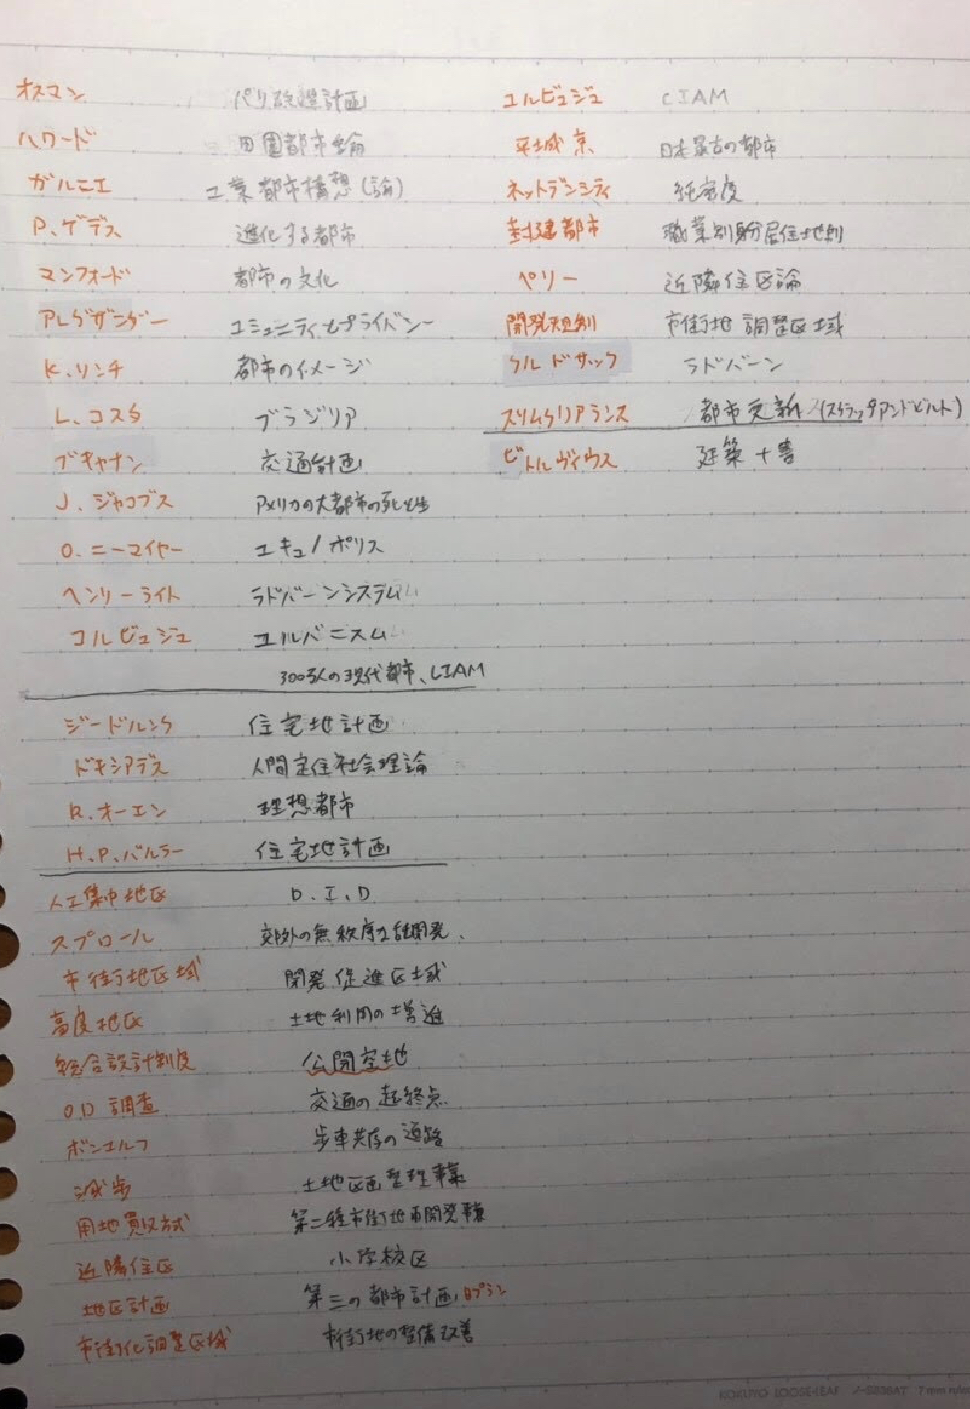 オスマン パリ改造計画
ハワード 田園都市論
ガルニエ 工業都市構想(論)
P.ゲデス 進化する都市
マンフォード 都市の文化
アレグザンダー コミュニティとプライバシー
K.リンチ 都市のイメージ
L.コスタ ブラジリア
ブキャナン 交通計画
J.ジャコブス アメリカの大都市の死と生
O.ニーマイヤー エキュノポリス
ヘンリーライト ラドバーンシステム
コルビュジュ ユルバニスム
300万人の現代都市、CIAM
ジードルング 住宅地計画
ドキシアデス 人間定住社会理論
R.オーエン 理想都市
H.P.バルラー 住宅地計画
人工集中地区 D.I.D
スプロール 郊外の無秩序な開発.
市街地区域 開発促進区域
高度地区 土地利用の増進
総合設計制度 公開空地
OD調査 交通の起終点
ボンエルフ 歩車共存の道路
減歩 土地区画整理事業
用地買収方式 第二種市街地再開発事業
近隣住区 小学校区
地区計画 第三の都市計画 Bプラン
市街化調整区域 市街地の整備改善
コルビュジュ CIAM
平城京 日本最古の都市
ネットデンシティ 純密度
封建都市 職業別身分居住地割
ペリー 近隣住区論
開発規制 市街地調整区域
クルドサック ラドバーン
スリムクリアランス 都市更新(スクラップアンドビルト)
ビトルヴィウス 建築十書
KOKUYO LOOSE-LEAF